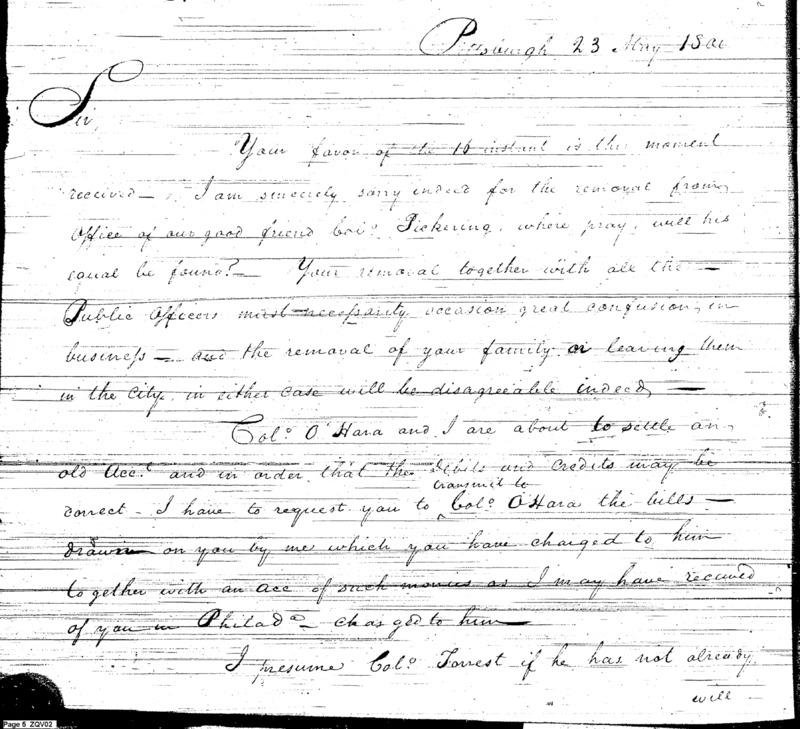 Pittsburgh 23 May 1800
Sir,
Your favor of the 16 instant is this moment
received — I am sincerely sorry indeed for the removal from
Office of our good friend Colo. Pickering, where pray, will his
equal be found? — Your removal together with all the —
Public Officers must necessarily occasion great confusion, in
business — and the removal of your family or leaving them
in the City, in either case will be disagreeable indeed, —
Colo. O'Hara and I are about to settle an
old Acct. and in order that the debits and credits may be
transmit to
correct — I have to request you to ^ Colo. OHara the bills —
drawn on you by me which you have charged to him
together with an acc of such monies as I may have received
of you in Philada — charged to him —
I presume Colo. Forrest if he has not already
will —
Page 5 ZQV02